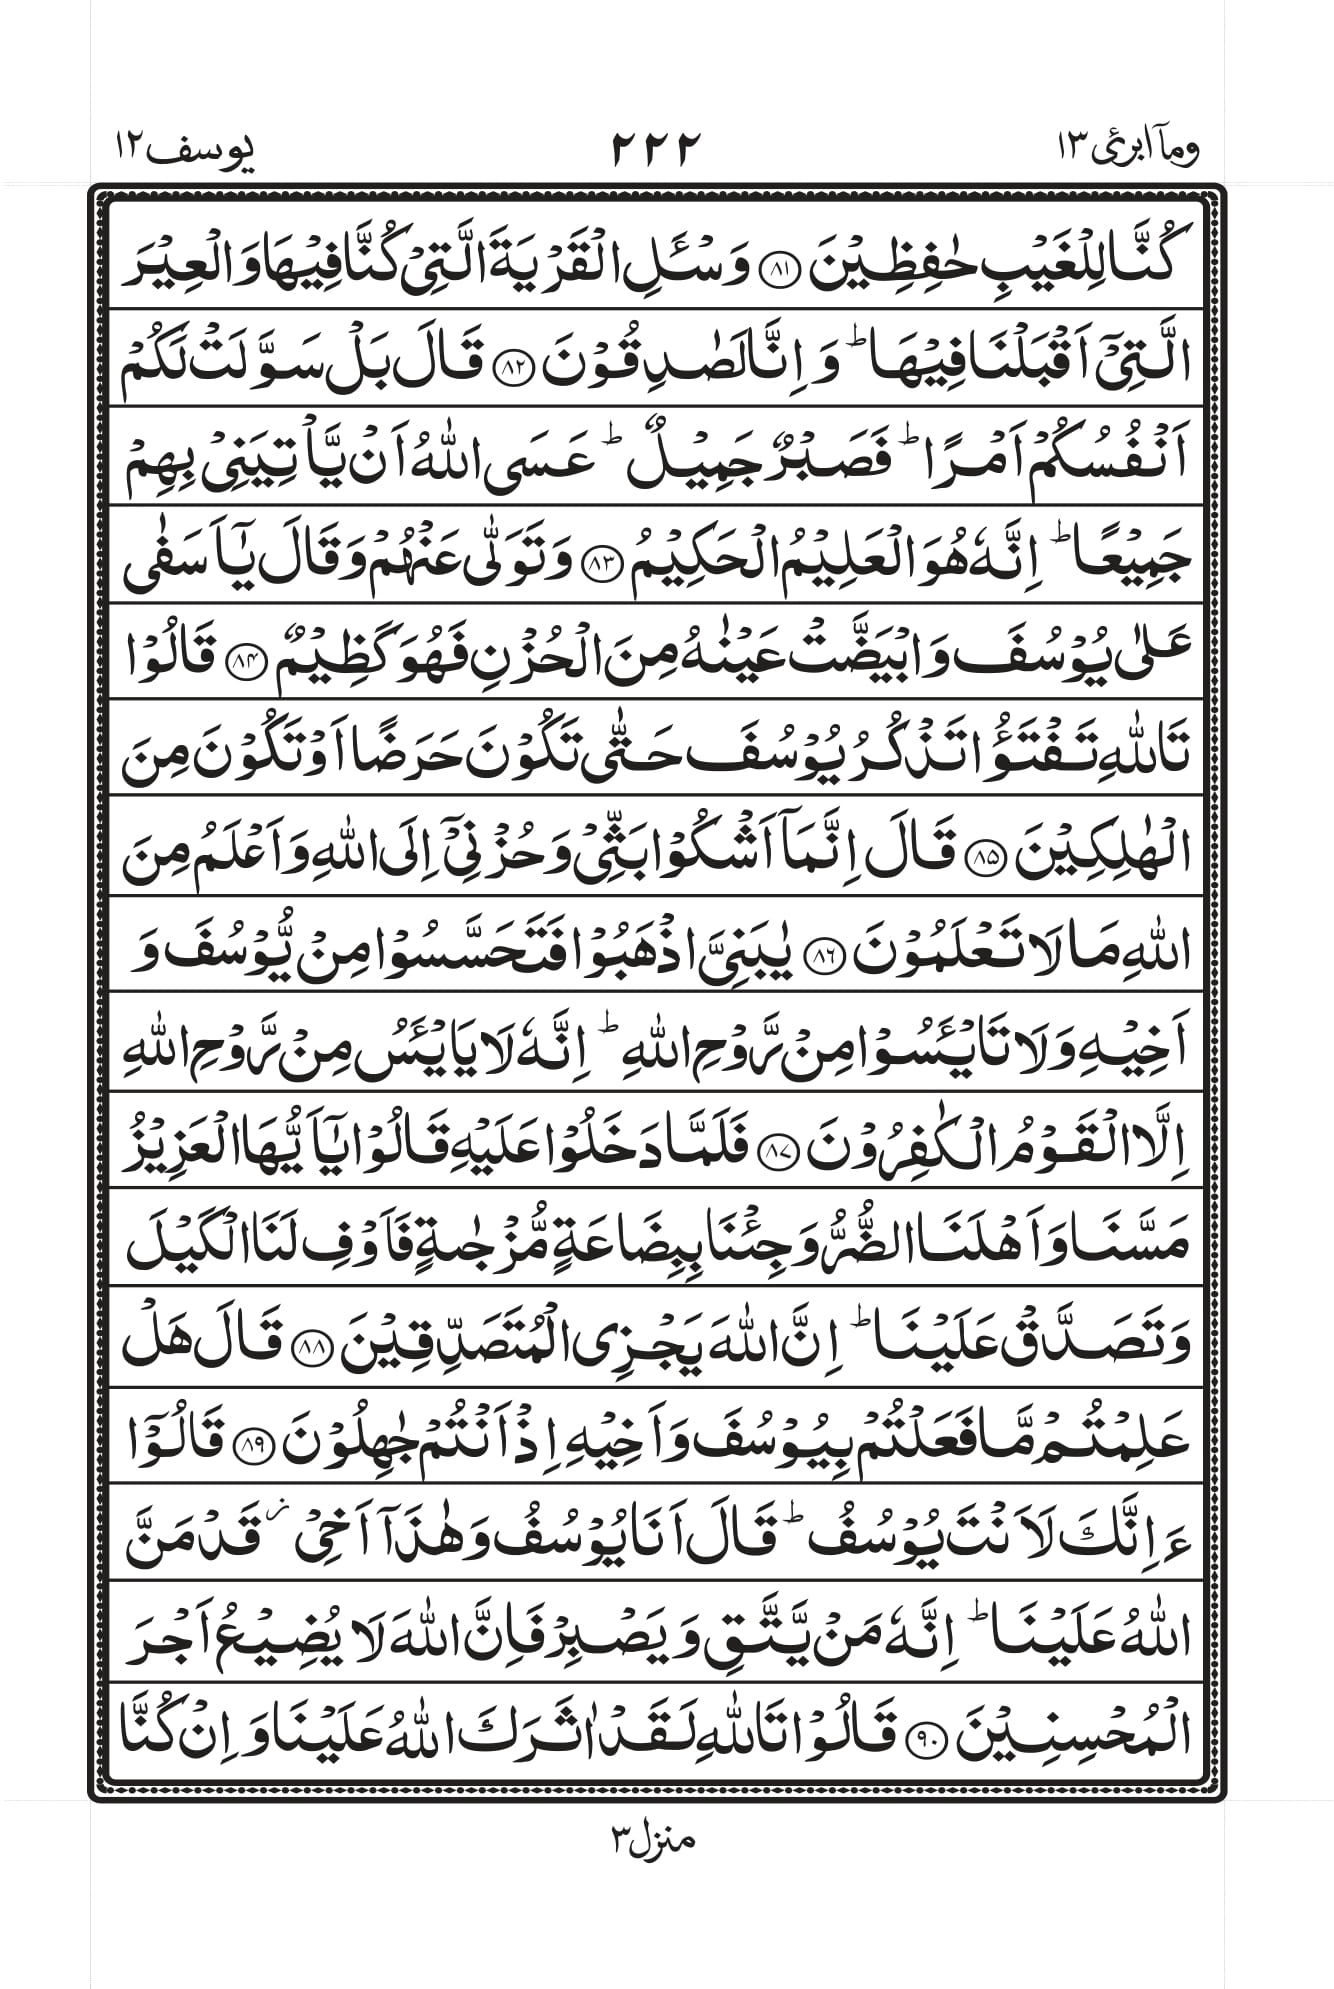 وماۤ ابرئ ١٣
٢٢٢
يوسف ١٢
كُنَّا لِلۡغَيۡبِ حٰفِظِيۡنَ ﴿۸۱﴾ وَسۡــَٔلِ الۡقَرۡيَةَ الَّتِىۡ كُنَّا فِيۡهَا وَالۡعِيۡرَ
الَّتِىۡۤ اَقۡبَلۡنَا فِيۡهَا ؕ وَاِنَّا لَصٰدِقُوۡنَ ﴿۸۲﴾ قَالَ بَلۡ سَوَّلَتۡ لَـكُمۡ
اَنۡفُسُكُمۡ اَمۡرًا ؕ فَصَبۡرٌ جَمِيۡلٌ ؕ عَسَى اللّٰهُ اَنۡ يَّاۡتِيَنِىۡ بِهِمۡ
جَمِيۡعًا ؕ اِنَّهٗ هُوَ الۡعَلِيۡمُ الۡحَكِيۡمُ ﴿۸۳﴾ وَتَوَلّٰى عَنۡهُمۡ وَقَالَ يٰۤاَسَفٰى
عَلٰى يُوۡسُفَ وَابۡيَضَّتۡ عَيۡنٰهُ مِنَ الۡحُزۡنِ فَهُوَ كَظِيۡمٌ ﴿۸۴﴾ قَالُوۡا
تَاللّٰهِ تَفۡتَؤُا تَذۡكُرُ يُوۡسُفَ حَتّٰى تَكُوۡنَ حَرَضًا اَوۡ تَكُوۡنَ مِنَ
الۡهٰلِكِيۡنَ ﴿۸۵﴾ قَالَ اِنَّمَاۤ اَشۡكُوۡا بَثِّىۡ وَحُزۡنِىۡۤ اِلَى اللّٰهِ وَاَعۡلَمُ مِنَ
اللّٰهِ مَا لَا تَعۡلَمُوۡنَ ﴿۸۶﴾ يٰبَنِىَّ اذۡهَبُوۡا فَتَحَسَّسُوۡا مِنۡ يُّوۡسُفَ وَ
اَخِيۡهِ وَلَا تَايۡـَٔسُوۡا مِنۡ رَّوۡحِ اللّٰهِ ؕ اِنَّهٗ لَا يَايۡـَٔسُ مِنۡ رَّوۡحِ اللّٰهِ
اِلَّا الۡقَوۡمُ الۡكٰفِرُوۡنَ ﴿۸۷﴾ فَلَمَّا دَخَلُوۡا عَلَيۡهِ قَالُوۡا يٰۤاَيُّهَا الۡعَزِيۡزُ
مَسَّنَا وَاَهۡلَنَا الضُّرُّ وَجِئۡنَا بِبِضَاعَةٍ مُّزۡجٰٮةٍ فَاَوۡفِ لَنَا الۡكَيۡلَ
وَتَصَدَّقۡ عَلَيۡنَا ؕ اِنَّ اللّٰهَ يَجۡزِى الۡمُتَصَدِّقِيۡنَ ﴿۸۸﴾ قَالَ هَلۡ
عَلِمۡتُمۡ مَّا فَعَلۡتُمۡ بِيُوۡسُفَ وَاَخِيۡهِ اِذۡ اَنۡتُمۡ جٰهِلُوۡنَ ﴿۸۹﴾ قَالُوۡۤا
ءَاِنَّكَ لَاَنۡتَ يُوۡسُفُ ؕ قَالَ اَنَا يُوۡسُفُ وَهٰذَاۤ اَخِىۡ ز قَدۡ مَنَّ
اللّٰهُ عَلَيۡنَا ؕ اِنَّهٗ مَنۡ يَّتَّقِ وَيَصۡبِرۡ فَاِنَّ اللّٰهَ لَا يُضِيۡعُ اَجۡرَ
الۡمُحۡسِنِيۡنَ ﴿۹۰﴾ قَالُوۡا تَاللّٰهِ لَقَدۡ اٰثَرَكَ اللّٰهُ عَلَيۡنَا وَاِنۡ كُنَّا
منزل ٣